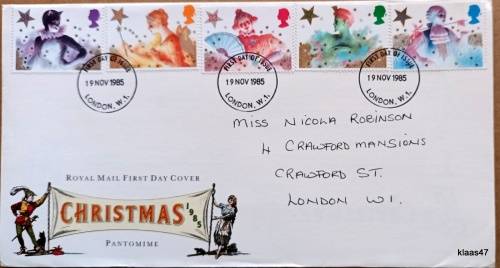 FIRST DAY OF ISSUE
19 NOV 1985
LONDON, W.1.
FIRST DAY OF ISSUE
19 NOV 1985
LONDON, W.1.
FIRST DAY OF ISSUE
19 NOV 1985
LONDON, W.1.
MISS NICOLA ROBINSON
4 CRAWFORD MANSIONS
CRAWFORD ST.
LONDON W1.
ROYAL MAIL FIRST DAY COVER
CHRISTMAS 1985
PANTOMIME
klaas47